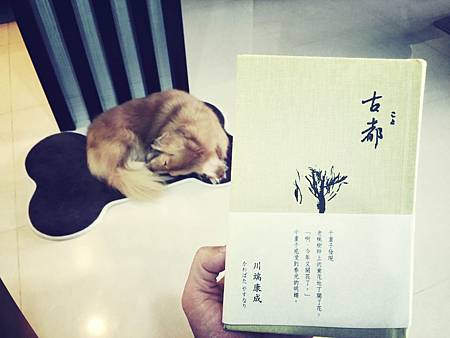 古都
こと
千重子發現
老楓樹幹上的紫花地丁開了花。
「啊，今年又開花了。」
千重子感受到春光的明媚。
川端康成
かわばた やすなり